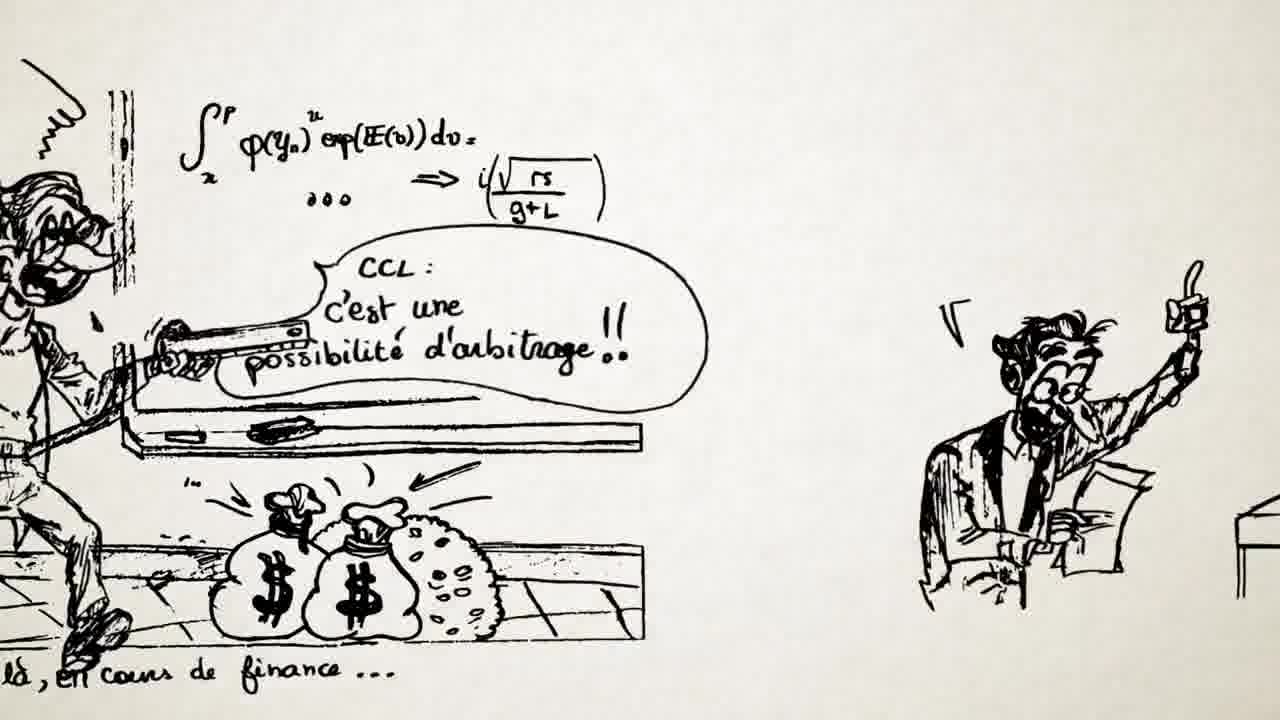 ∫ₓᴾ φ(yₙ)ˣ exp(𝔼(v)) dv =
... ⇒ i(√rs / g+L)
CCL :
c'est une
possibilité d'arbitrage !!
$ $
là, en cours de finance ...